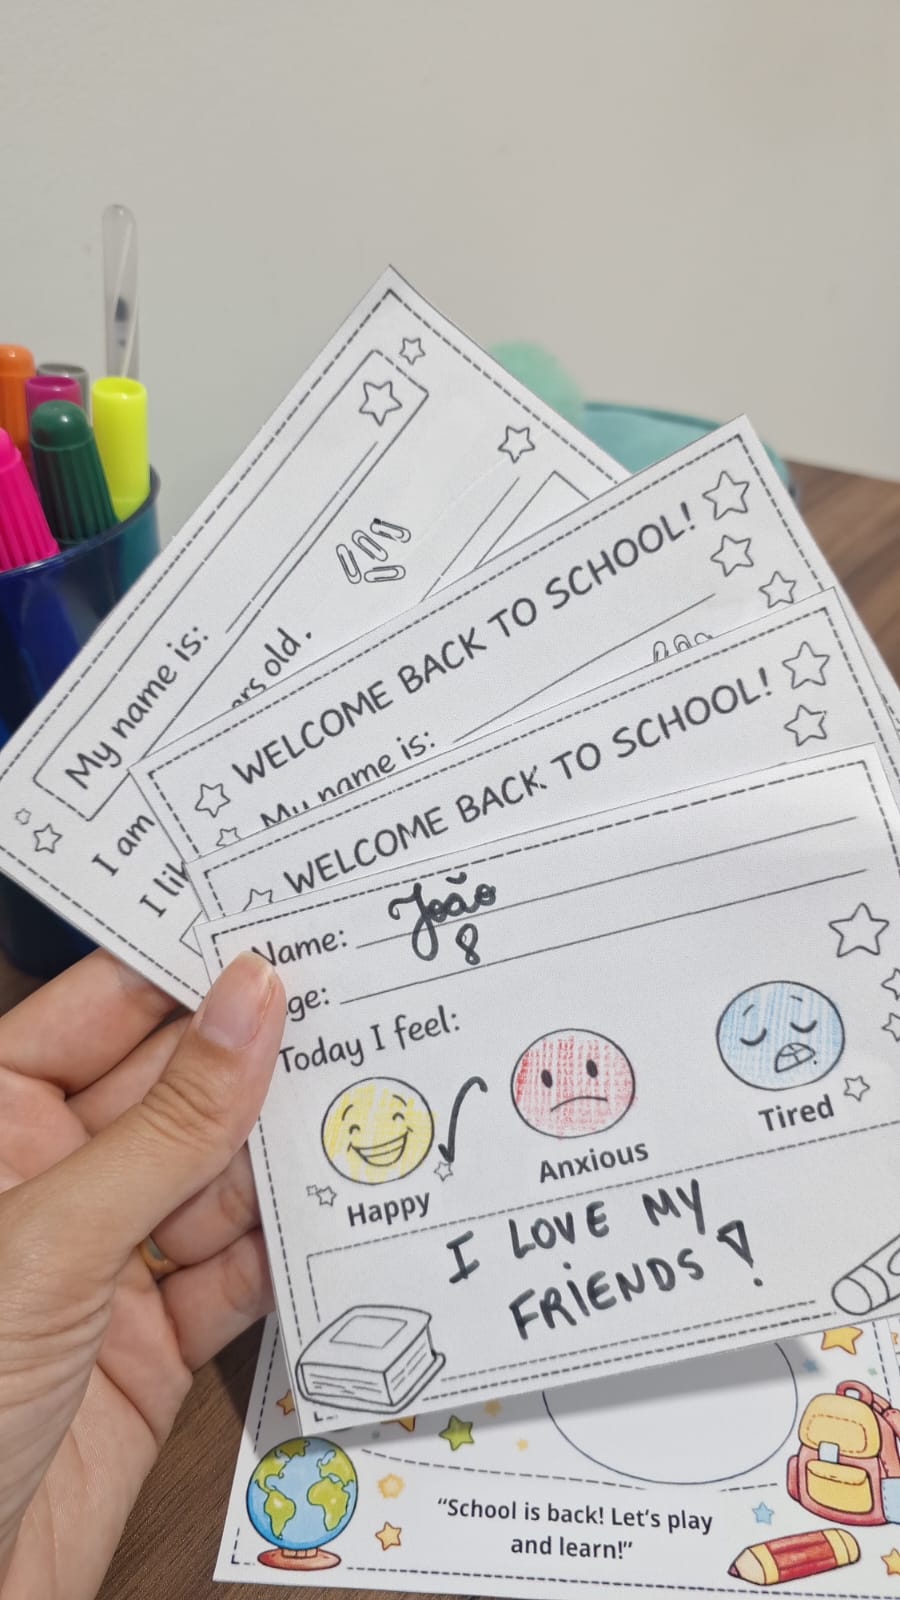 My name is:
I am
old.
WELCOME BACK TO SCHOOL!
My name is:
WELCOME BACK TO SCHOOL!
Name: João
8
Today I feel:
Happy
Anxious
Tired
I LOVE MY
FRIENDS!
“School is back! Let’s play
and learn!”